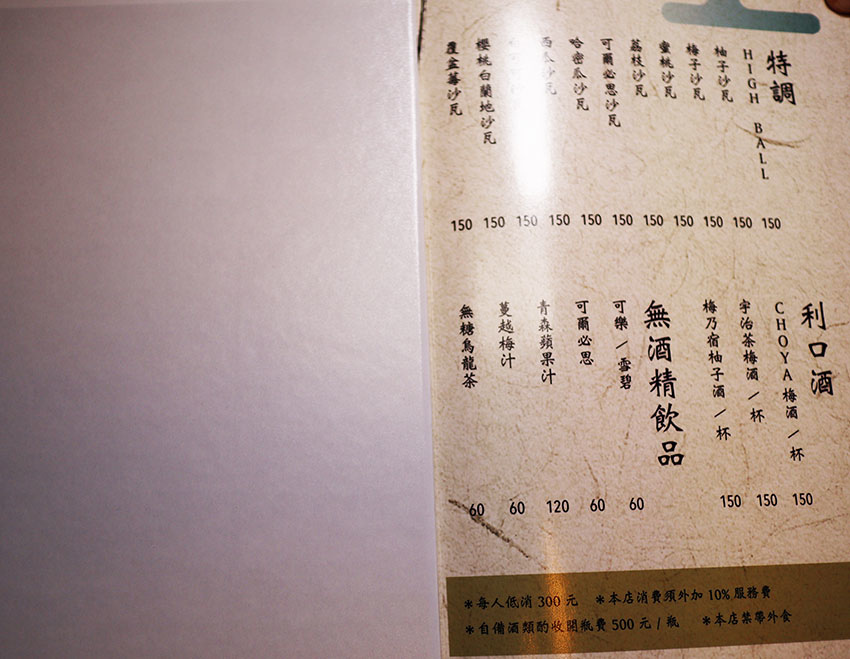 特調
HIGH BALL 150
柚子沙瓦 150
梅子沙瓦 150
蜜桃沙瓦 150
荔枝沙瓦 150
可爾必思沙瓦 150
哈密瓜沙瓦 150
西瓜沙瓦 150
150
櫻桃白蘭地沙瓦 150
覆盆莓沙瓦 150
利口酒
CHOYA梅酒/杯 150
宇治茶梅酒/杯 150
梅乃宿柚子酒/杯 150
無酒精飲品
可樂/雪碧 60
可爾必思 60
青森蘋果汁 120
蔓越梅汁 60
無糖烏龍茶 60
*每人低消300元 *本店消費須外加10%服務費
*自備酒類酌收開瓶費500元/瓶 *本店禁帶外食